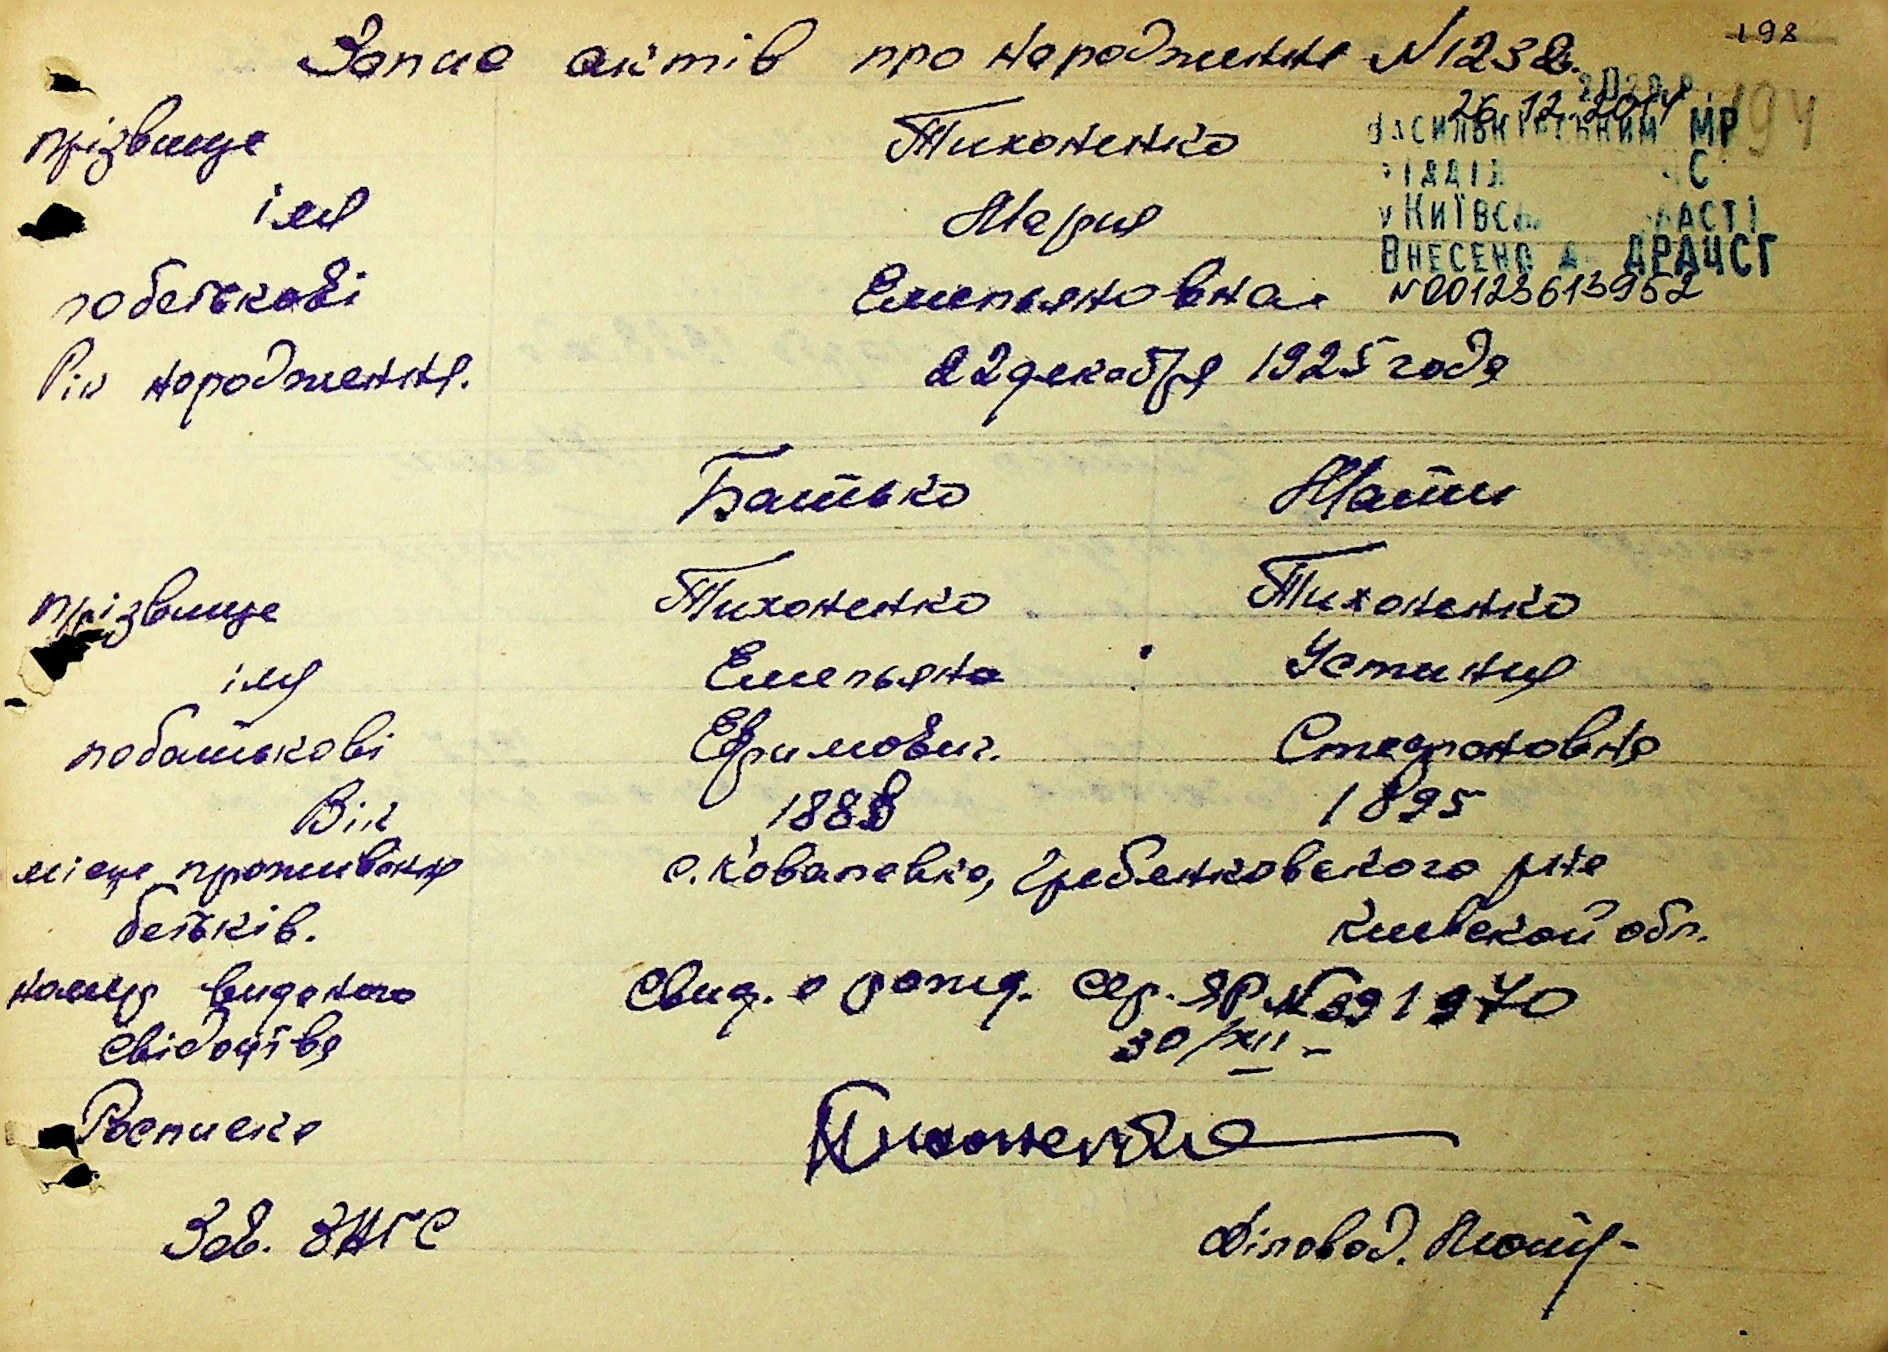 Запис актів про народження N 1232.
198
194
26.12.2014
прізвище Тихоненко
ВАСИЛЬКІВСЬКИМ МР
імя Мария
ВІДДІЛ
У КИЇВСЬ ЛАСТІ
побатькові Емельяновна.
ВНЕСЕНО Д ДРАЦСГ
N00123613952
Рік народження. 22 декабря 1925 года
Батько Мати
прізвище Тихоненко Тихоненко
імя Емельяна Устиния
побатькові Ефимович. Стефановна
Вік 1888 1895
місце проживання с. Ковалевка, Гребенковского рна
батьків. Киевской обл.
номер виданого Свид. о рожд. сер. ЯР № 391970
свідоцтва 30/XII-
Росписка Тихоненко
Зав. ЗАГС Діловод.